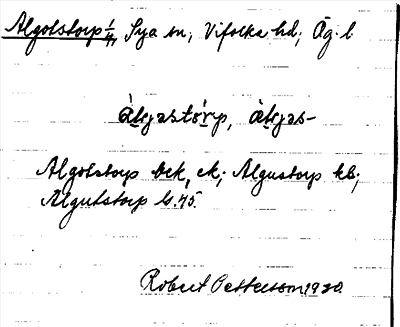 Algotstorp 1/4, Sya sn, Vifolka hd, Ög. l.
àlgastórp, àlgas-
Algotstorp bek, ek; Algustorp kb;
Algutstorp ls. 45.
Robert Pettersson 1930.